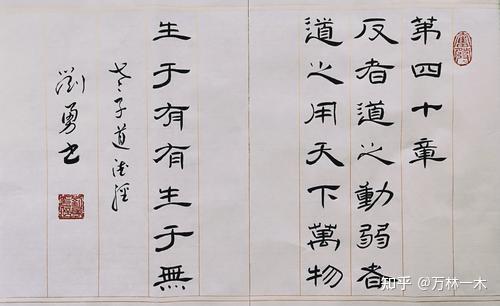 第四十章
反者道之動弱者
道之用天下萬物
生于有有生于無
老子道德經
劉勇书
知乎 @万林一木